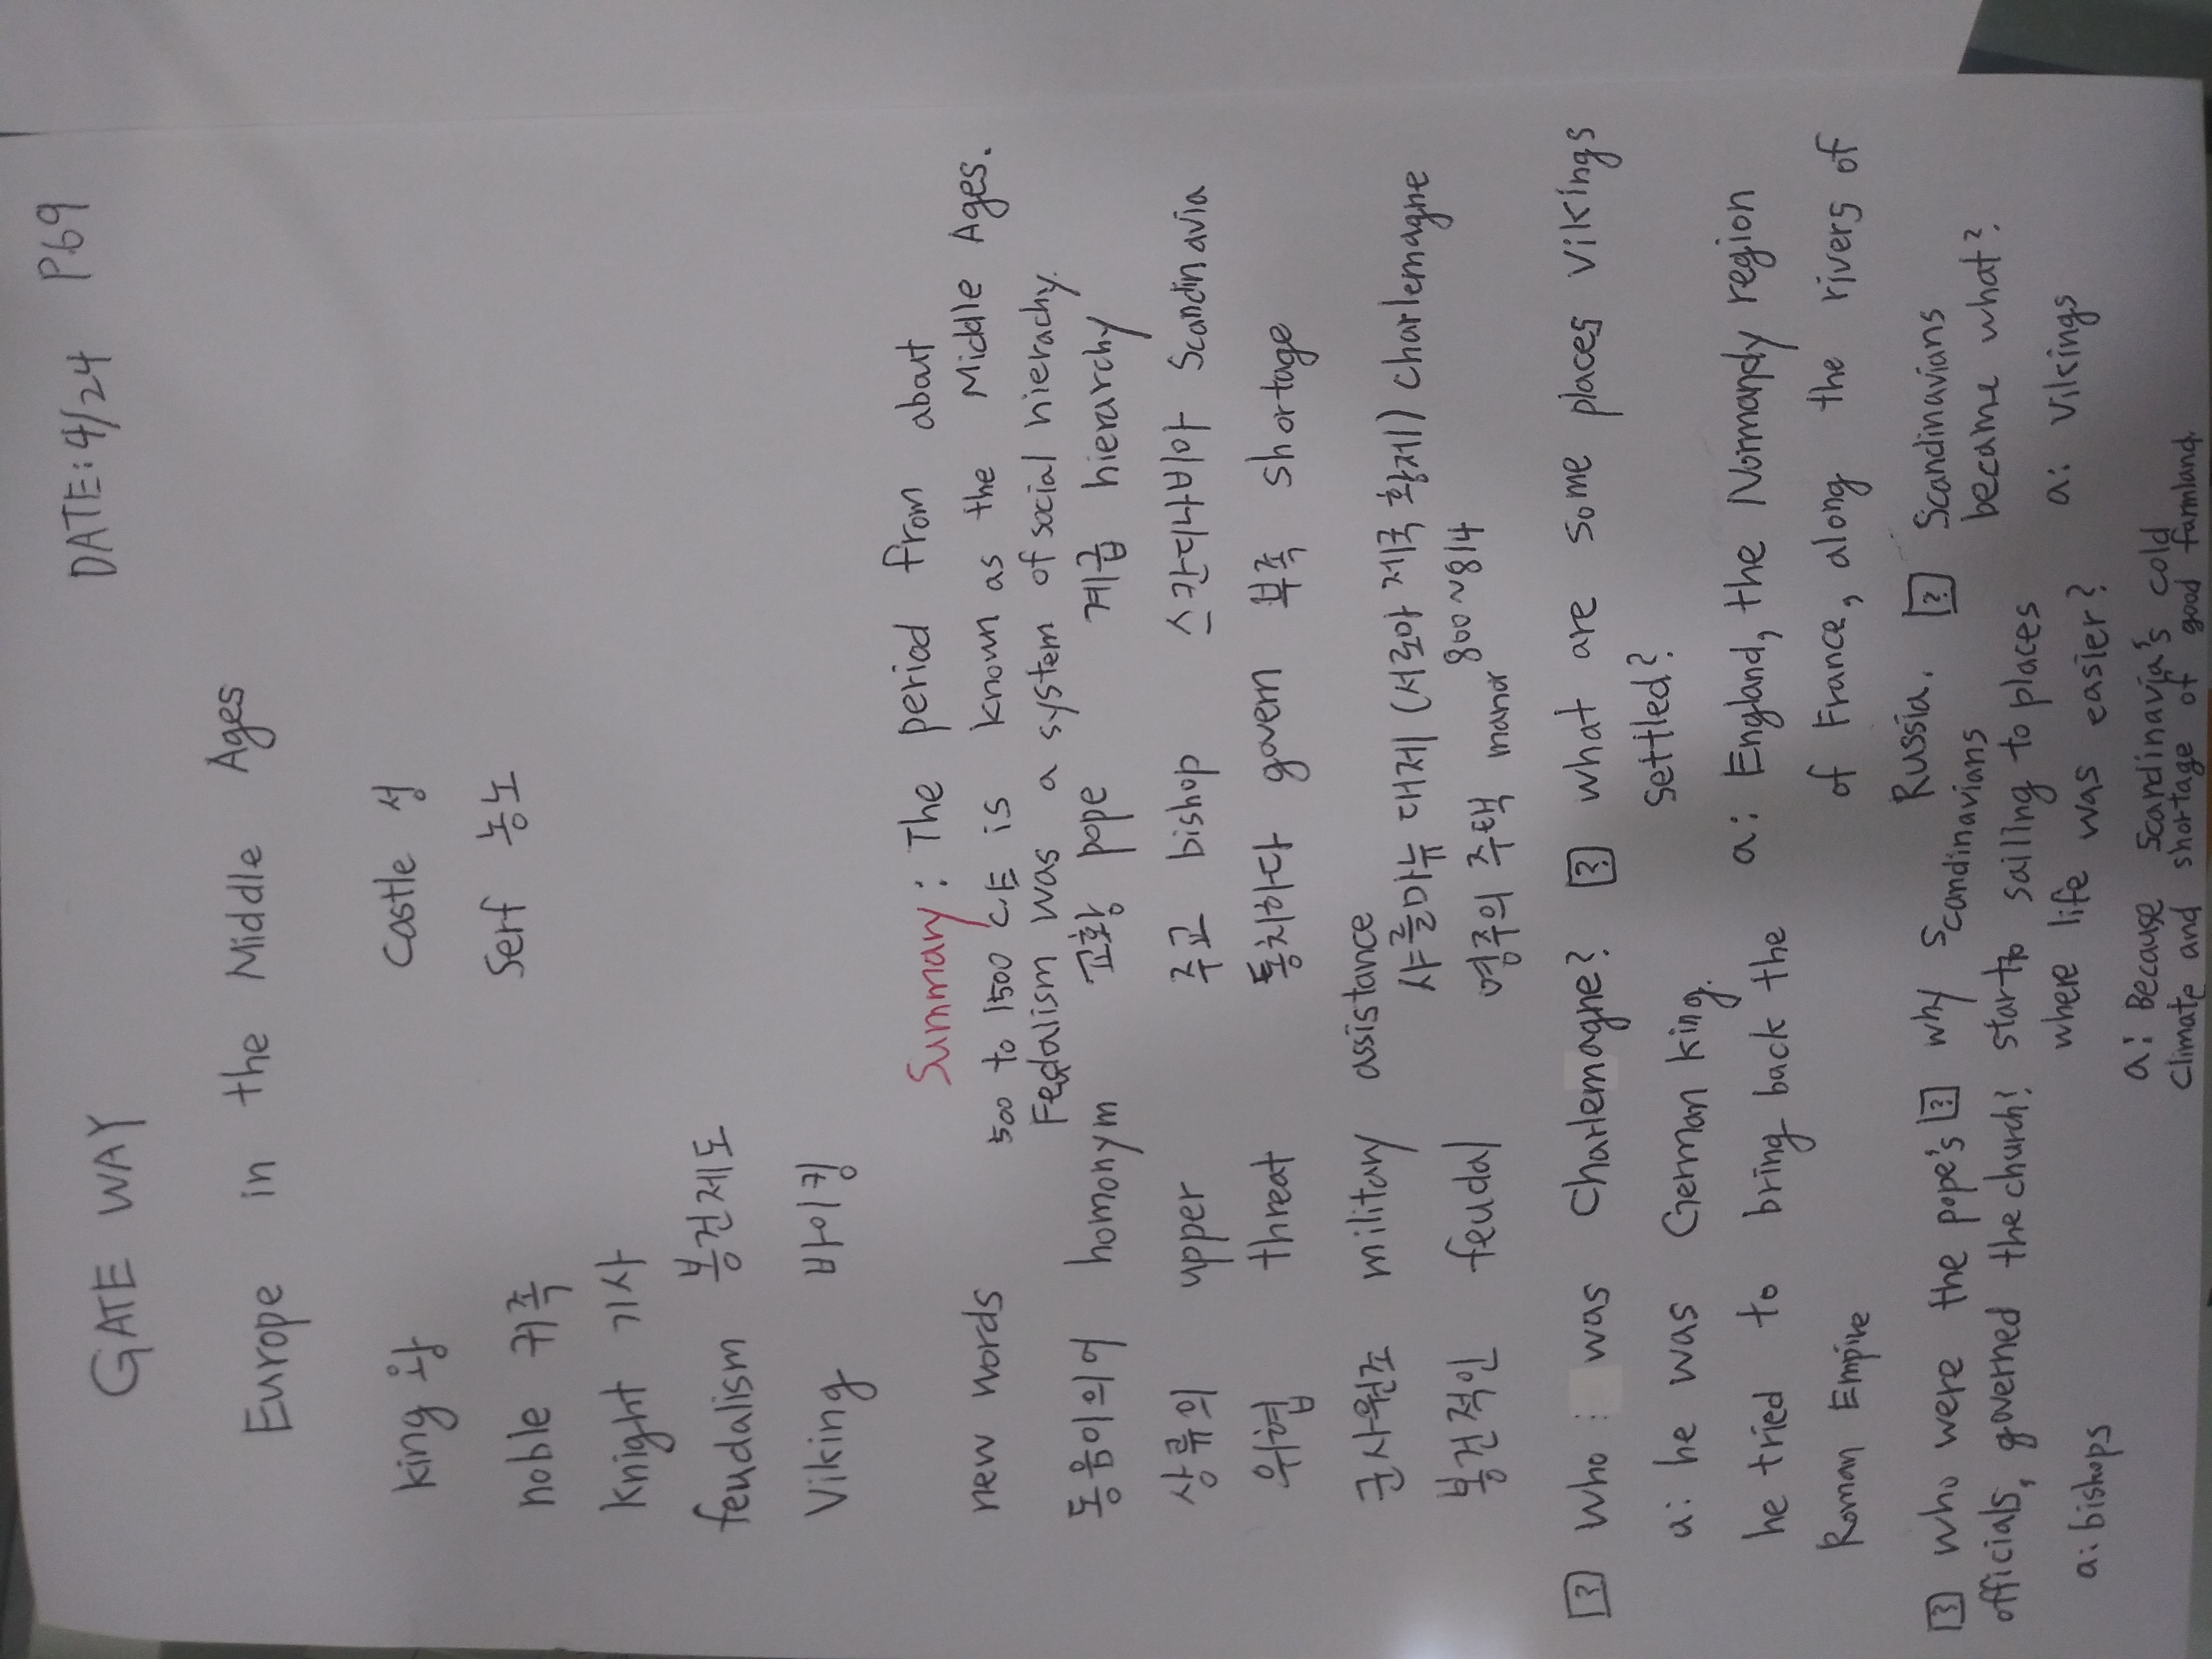 GATE WAY DATE: 4/24 P.69
Europe in the Middle Ages
king 왕 castle 성
noble 귀족 serf 농노
knight 기사
feudalism 봉건제도
Viking 바이킹
Summary: The period from about
500 to 1500 C.E is known as the Middle Ages.
Fedalism was a system of social hierachy.
new words
동음이의어 homonym 교황 pope 계급 hierarchy
상류의 upper 주교 bishop 스칸디나비아 Scandinavia
위협 threat 통치하다 govern 부족 shortage
군사원조 military assistance
샤를마뉴 대제 (서로마 제국 황제) charlemagne
800~814
봉건적인 feudal 영주의 주택 manor
? who : was Charlemagne?
a: he was German king.
he tried to bring back the
Roman Empire
? what are some places vikings
settled?
a: England, the Normandy region
of France, along the rivers of
Russia.
? who were the pope's
officials, governed the church?
a: bishops
? why Scandinavians
start to sailing to places
where life was easier?
a: Because Scandinavia's cold
climate and shortage of good farmland.
? Scandinavians
became what?
a: vikings